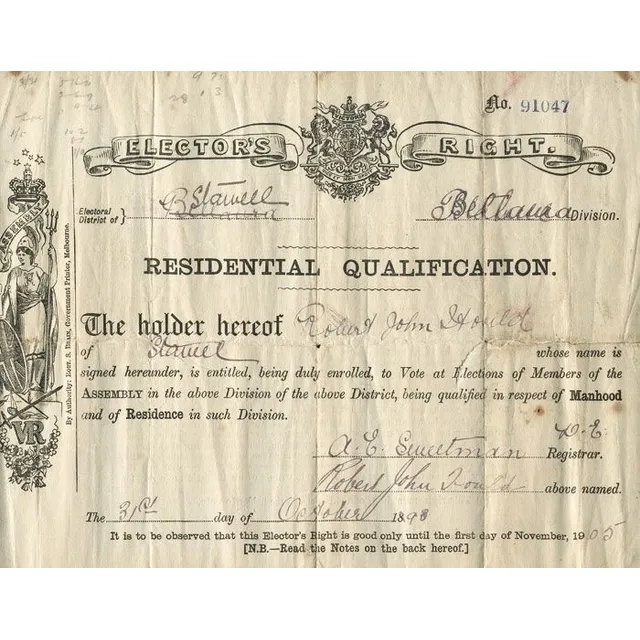 No. 91047
ELECTOR'S RIGHT.
Electoral District of } Stawell Division.
RESIDENTIAL QUALIFICATION.
The holder hereof Robert John
of Stawell whose name is
signed hereunder, is entitled, being duly enrolled, to Vote at Elections of Members of the
ASSEMBLY in the above Division of the above District, being qualified in respect of Manhood
and of Residence in such Division.
A. E. Sweetman
Registrar.
Robert John above named.
The 31st day of October 1898
It is to be observed that this Elector's Right is good only until the first day of November, 1905
[N.B.—Read the Notes on the back hereof.]
By Authority: ROBT. S. BRAIN, Government Printer, Melbourne.
VR